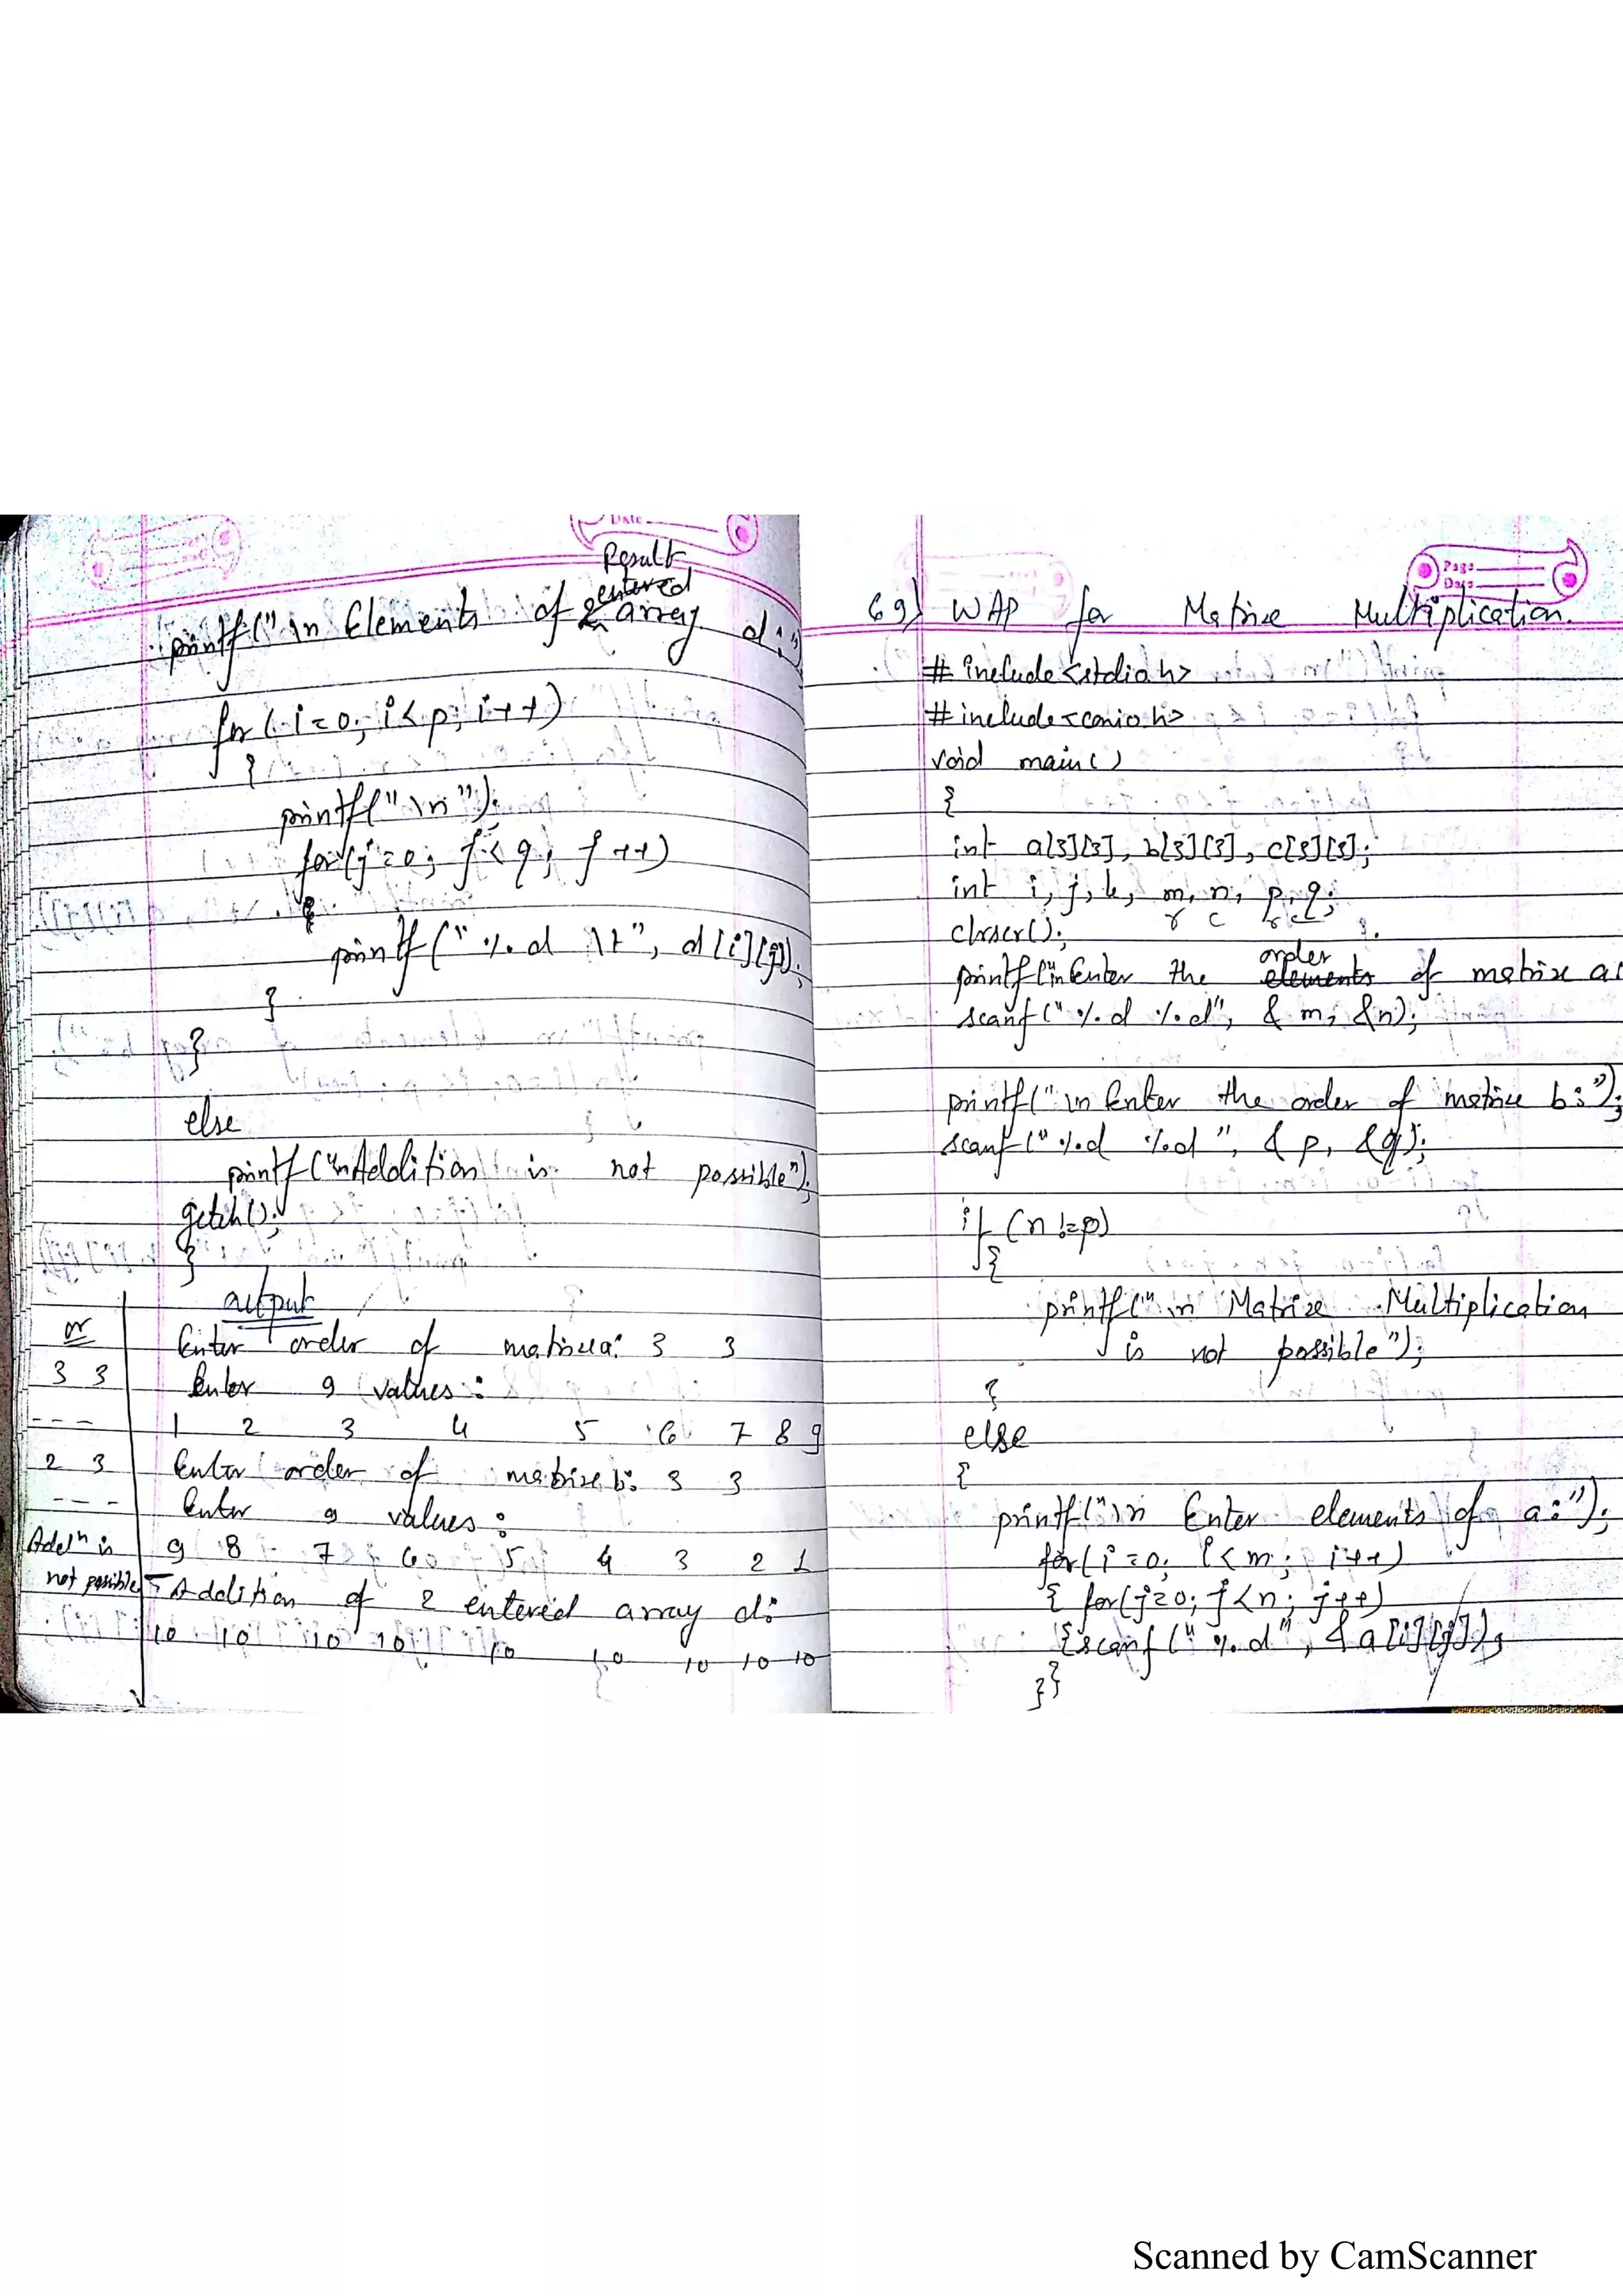 Date
Result
entered
printf("\n Elements of 2 array d:")
for(i=0; i<p; i++)
{
printf("\n");
for(j=0; j<q; j++)
{
printf("%d \t", d[i][j]);
}
}
else
printf("\nAddition is not possible");
getch();
}
output
Enter order of matrix a: 3 3
Enter 9 values:
1 2 3 4 5 6 7 8 9
Enter order of matrix b: 3 3
Enter 9 values:
9 8 7 6 5 4 3 2 1
Addition of 2 entered array d:
10 10 10 10 10 10 10 10 10
or
3 3
---
2 3
---
Addn is
not possible
Page
Date
69) WAP for Matrix Multiplication.
#include<stdio.h>
#include<conio.h>
void main()
{
int a[3][3], b[3][3], c[3][3];
int i, j, k, m, n, p, q;
r c r c
clrscr();
order
printf("\nEnter the elements of matrix a:
scanf("%d %d", &m, &n);
printf("\n Enter the order of matrix b:");
scanf("%d %d", &p, &q);
if (n!=p)
{
printf("\n Matrix Multiplication
is not possible");
}
else
{
printf("\n Enter elements of a:");
for(i=0; i<m; i++)
{ for(j=0; j<n; j++)
{scanf("%d", &a[i][j]);
}}
Scanned by CamScanner